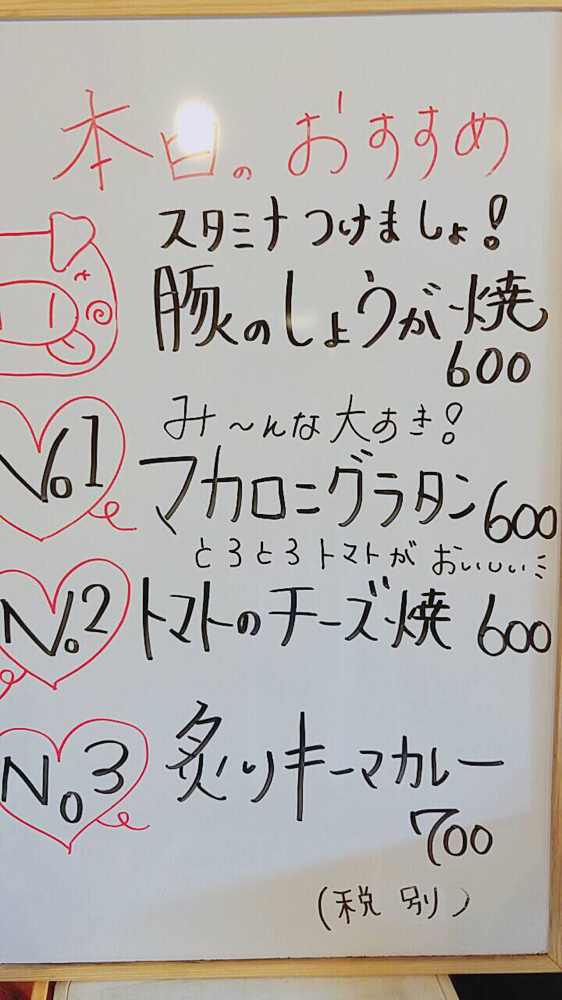 本日のおすすめ
スタミナつけましょ!
豚のしょうが焼
600
No.1
み〜んな大すき!
マカロニグラタン 600
とろとろトマトがおいしい
No.2 トマトのチーズ焼 600
No.3 炙りキーマカレー
700
(税別)